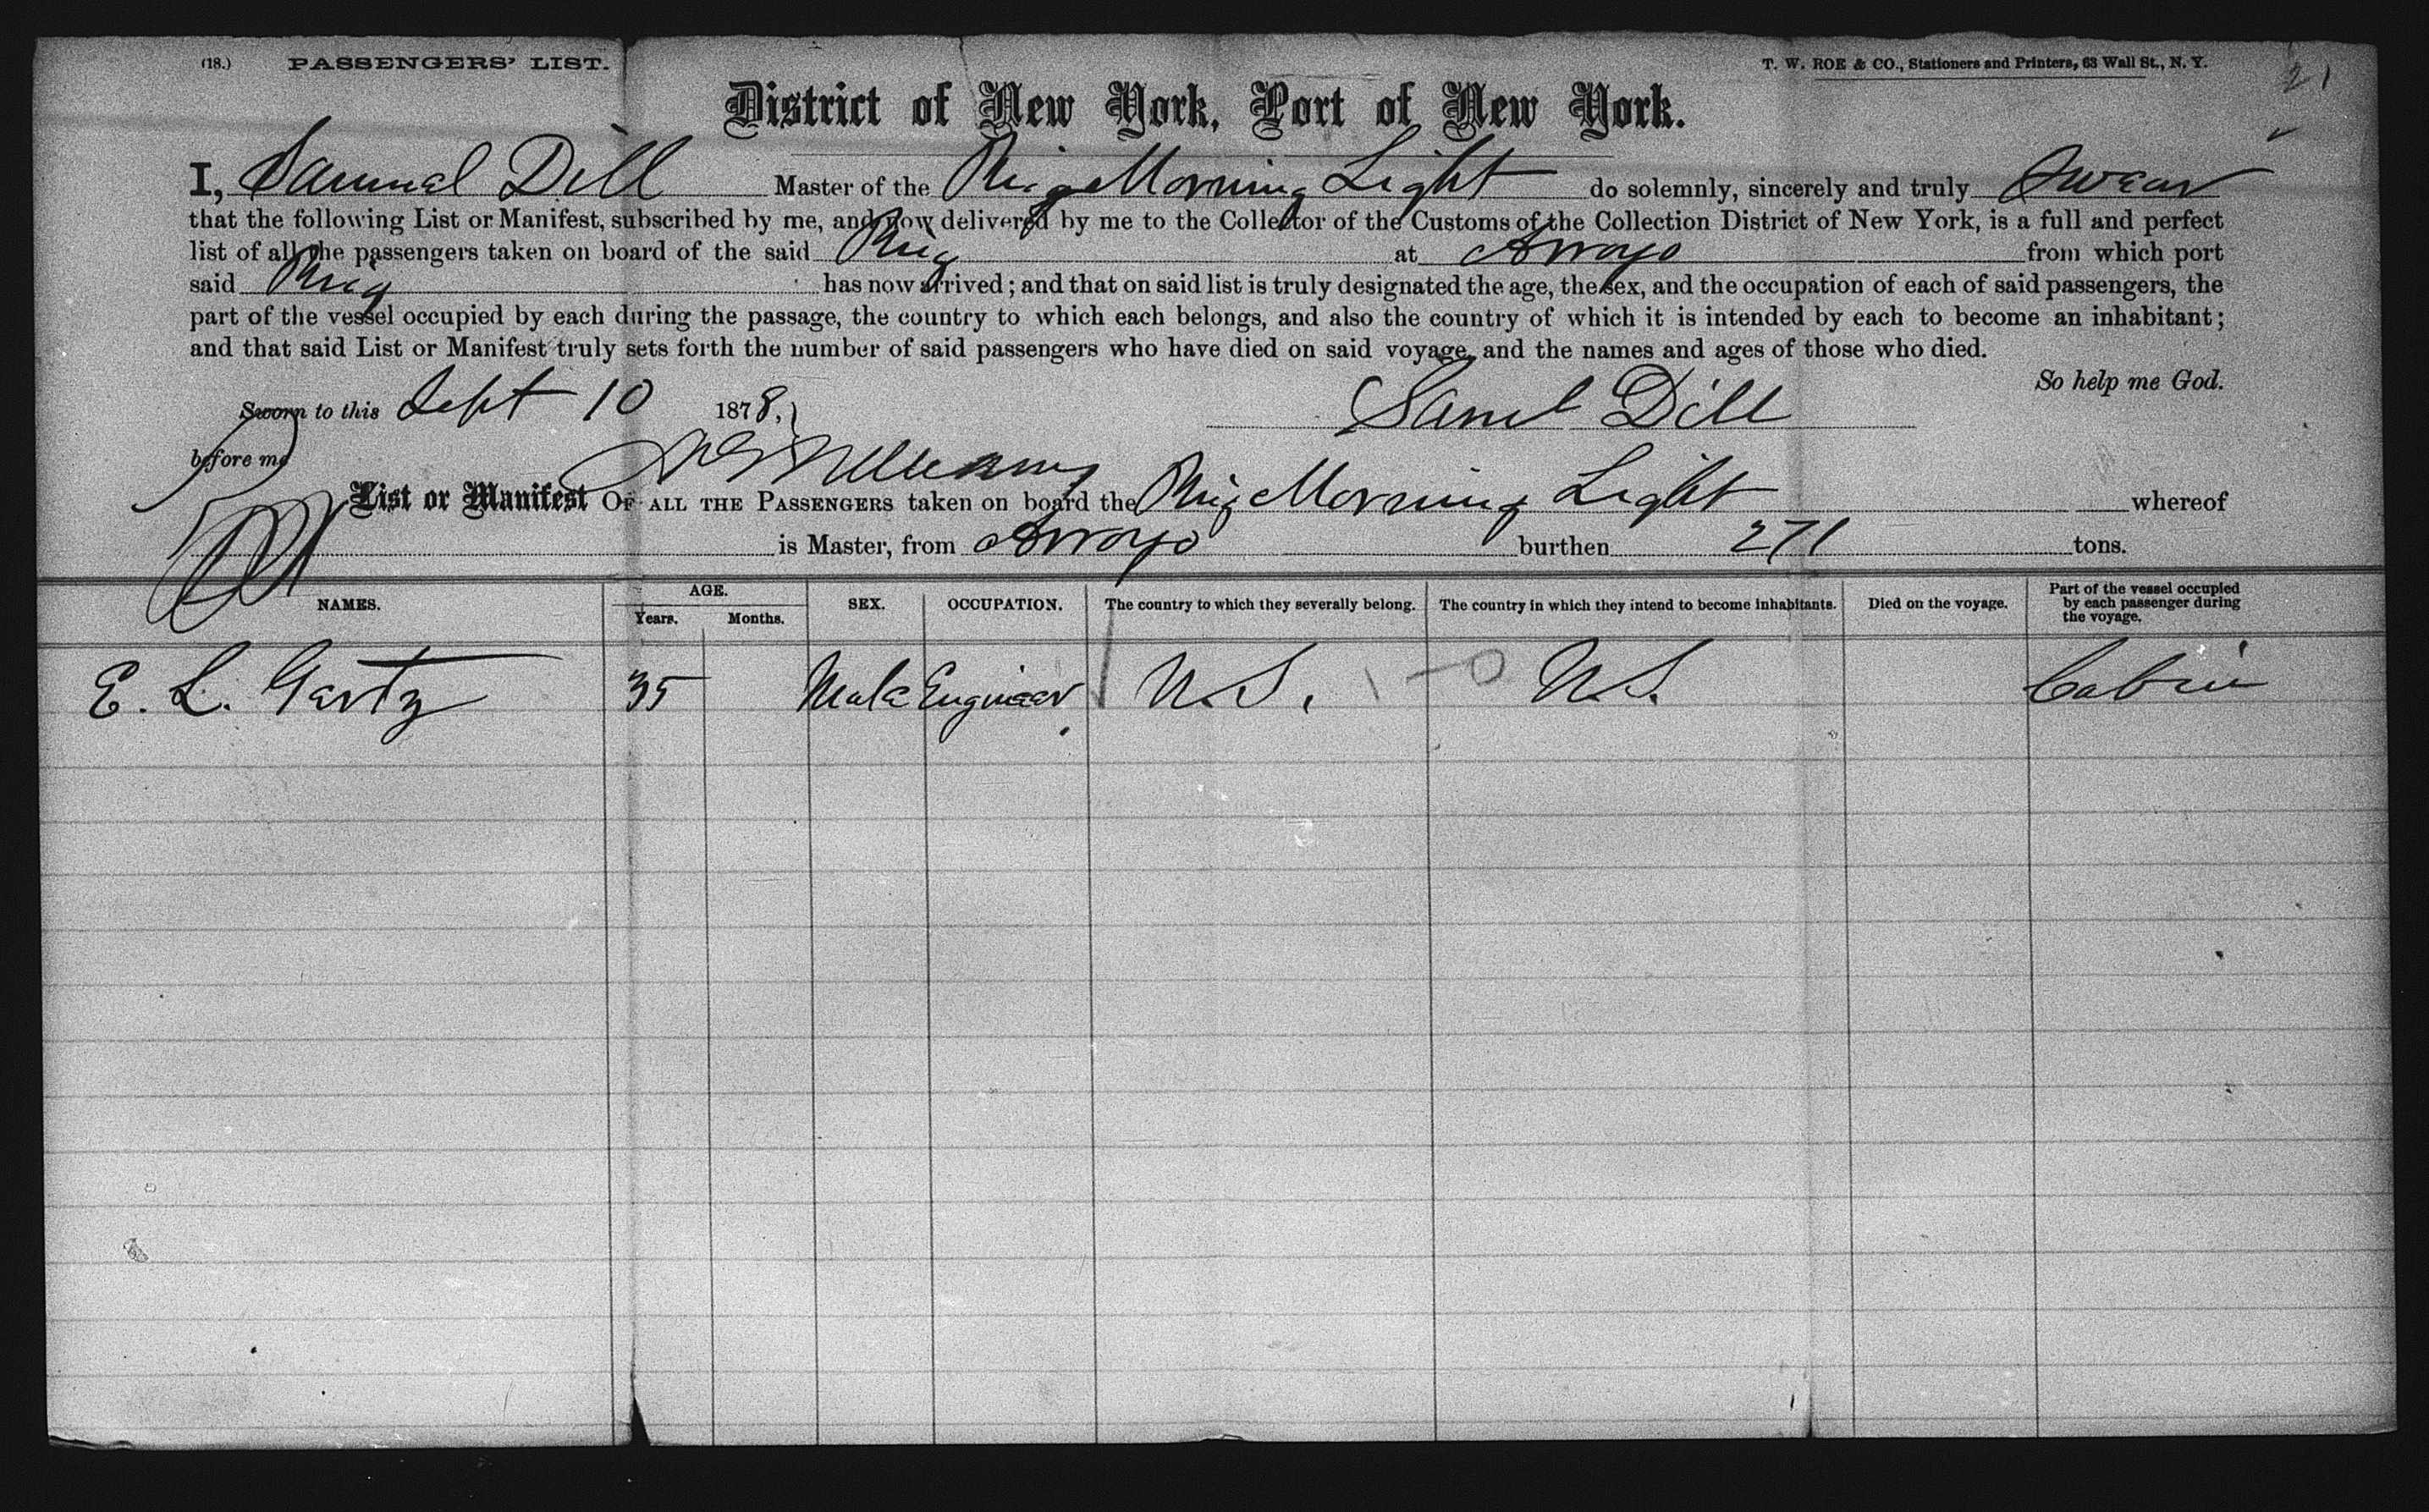 (18.) PASSENGERS' LIST. T. W. ROE & CO., Stationers and Printers, 63 Wall St., N. Y. 21
District of New York, Port of New York.
I, Samuel Dill Master of the Brig Morning Light do solemnly, sincerely and truly Swear
that the following List or Manifest, subscribed by me, and now delivered by me to the Collector of the Customs of the Collection District of New York, is a full and perfect
list of all the passengers taken on board of the said Brig at Arroyo from which port
said Brig has now arrived; and that on said list is truly designated the age, the sex, and the occupation of each of said passengers, the
part of the vessel occupied by each during the passage, the country to which each belongs, and also the country of which it is intended by each to become an inhabitant;
and that said List or Manifest truly sets forth the number of said passengers who have died on said voyage, and the names and ages of those who died.
So help me God.
Sworn to this Sept 10 1878, Saml Dill
before me
List or Manifest OF ALL THE PASSENGERS taken on board the Brig Morning Light whereof
is Master, from Arroyo burthen 271 tons.
NAMES. AGE. Years. Months. SEX. OCCUPATION. The country to which they severally belong. The country in which they intend to become inhabitants. Died on the voyage. Part of the vessel occupied by each passenger during the voyage.
E. L. Gartz 35 Male Engineer U.S. 1-0 U.S. Cabin